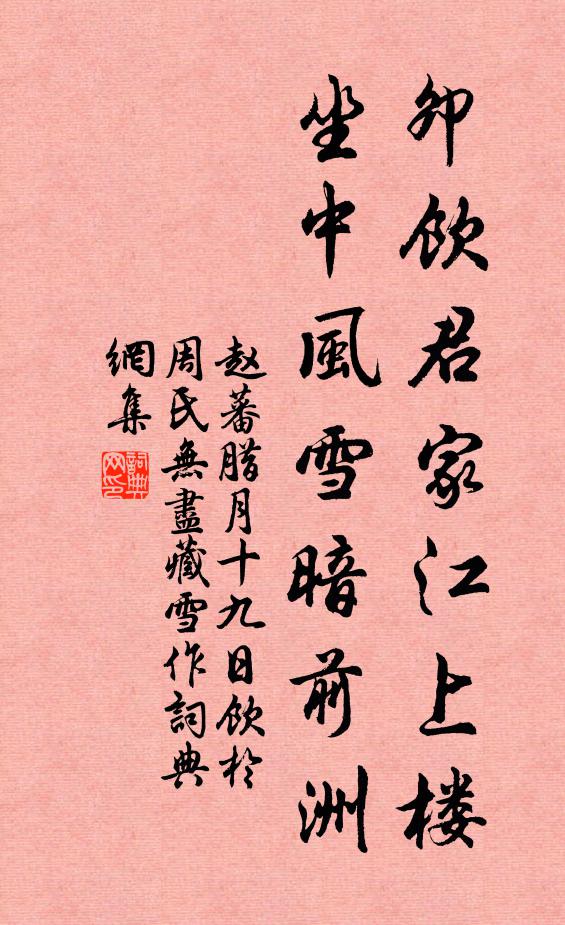 卯饮君家江上楼
坐中風雪暗前洲
赵蕃腊月十九日飲於
周氏無盡藏雪作詞典
網集
詞典
网印